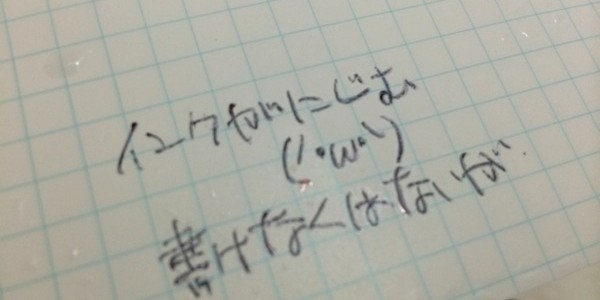 インクがにじむ
(´・ω・`)
書けなくはないが